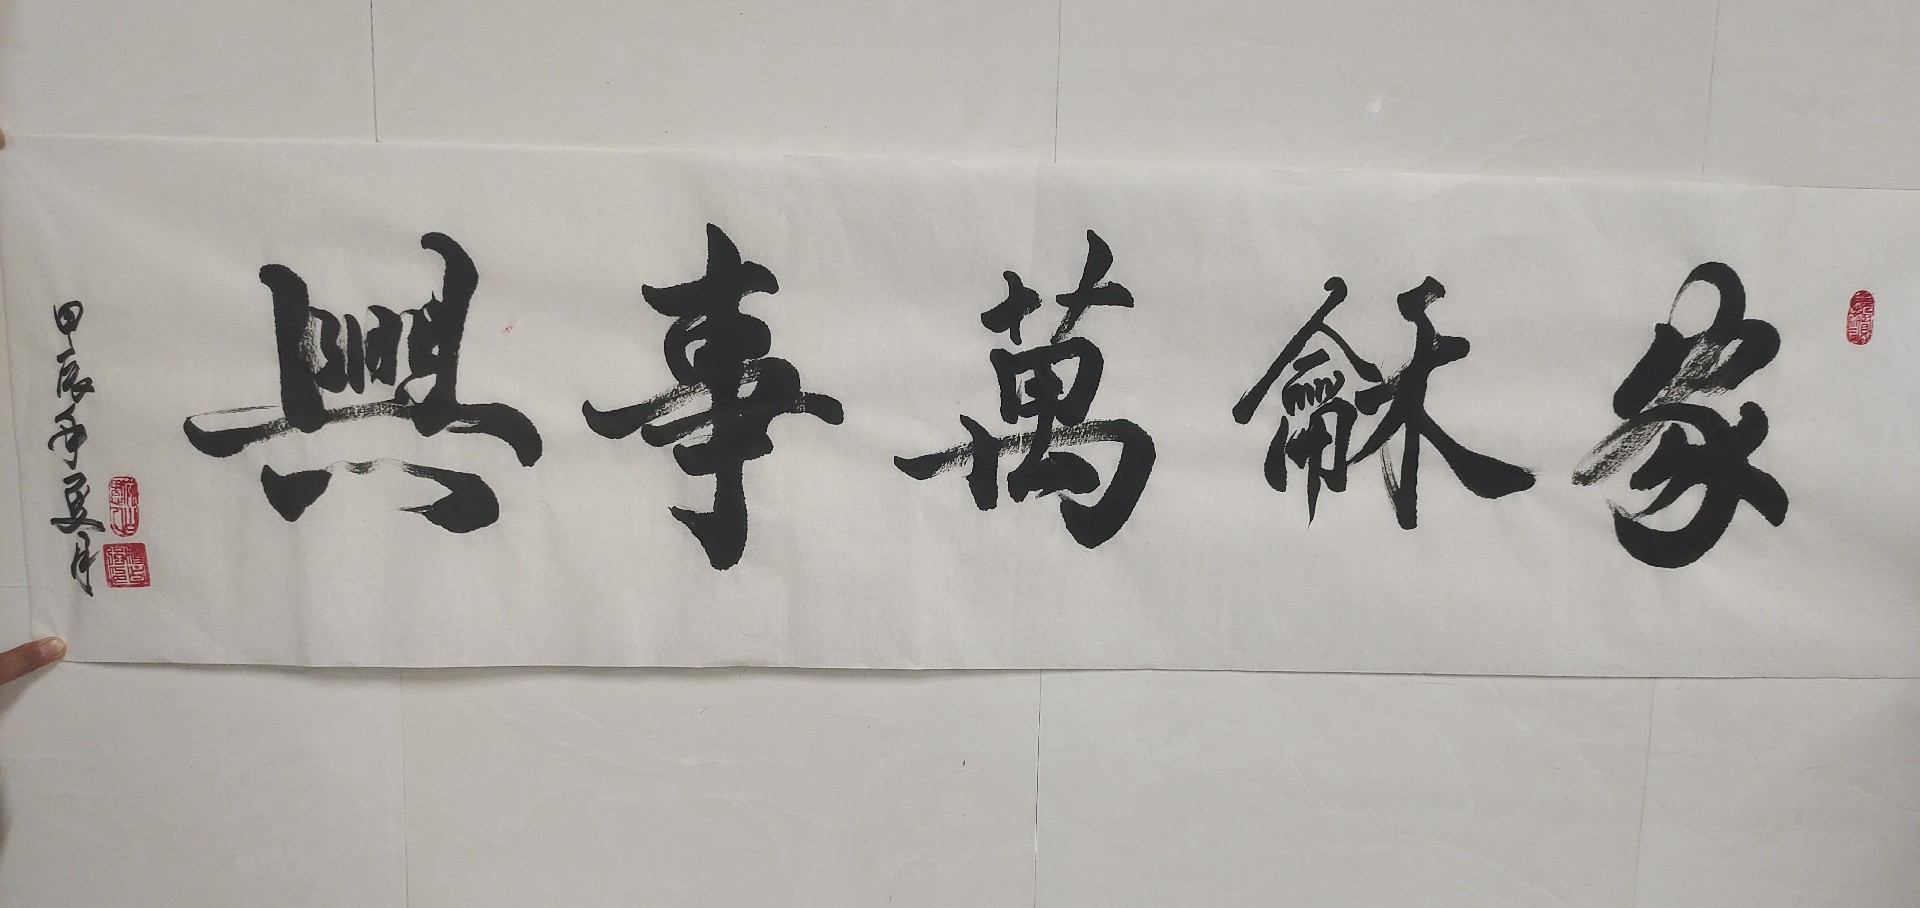 家龢萬事興
甲辰年夏月